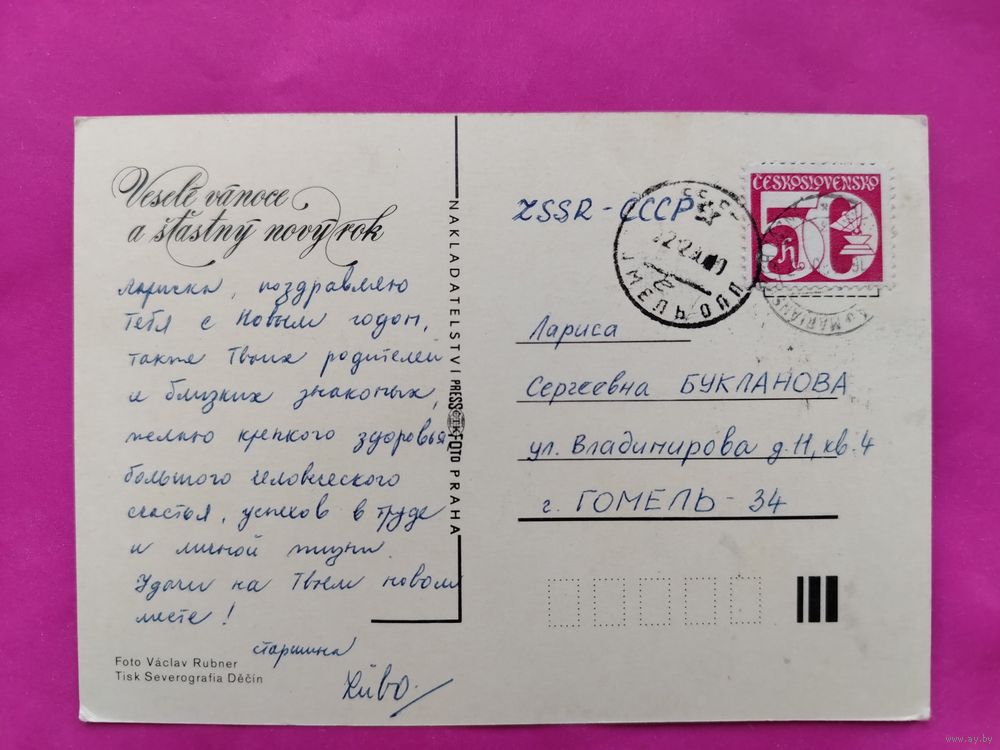 Veselé vánoce
a šťastný nový rok
Лариска, поздравляю
Тебя с Новым годом,
также Твоих родителей
и близких знакомых,
желаю крепкого здоровья
большого человеческого
счастья, успехов в труде
и личной жизни.
Удачи на Твоем новом
месте!
старшина
Foto Václav Rubner
Tisk Severografia Děčín
NAKLADATELSTVÍ PRESSFOTO PRAHA
ČTK
ZSSR - СССР
ČESKOSLOVENSKO
50
h
Лариса
Сергеевна БУКЛАНОВА
ул. Владимирова д. 11, кв. 4
г. ГОМЕЛЬ - 34
www.ay.by